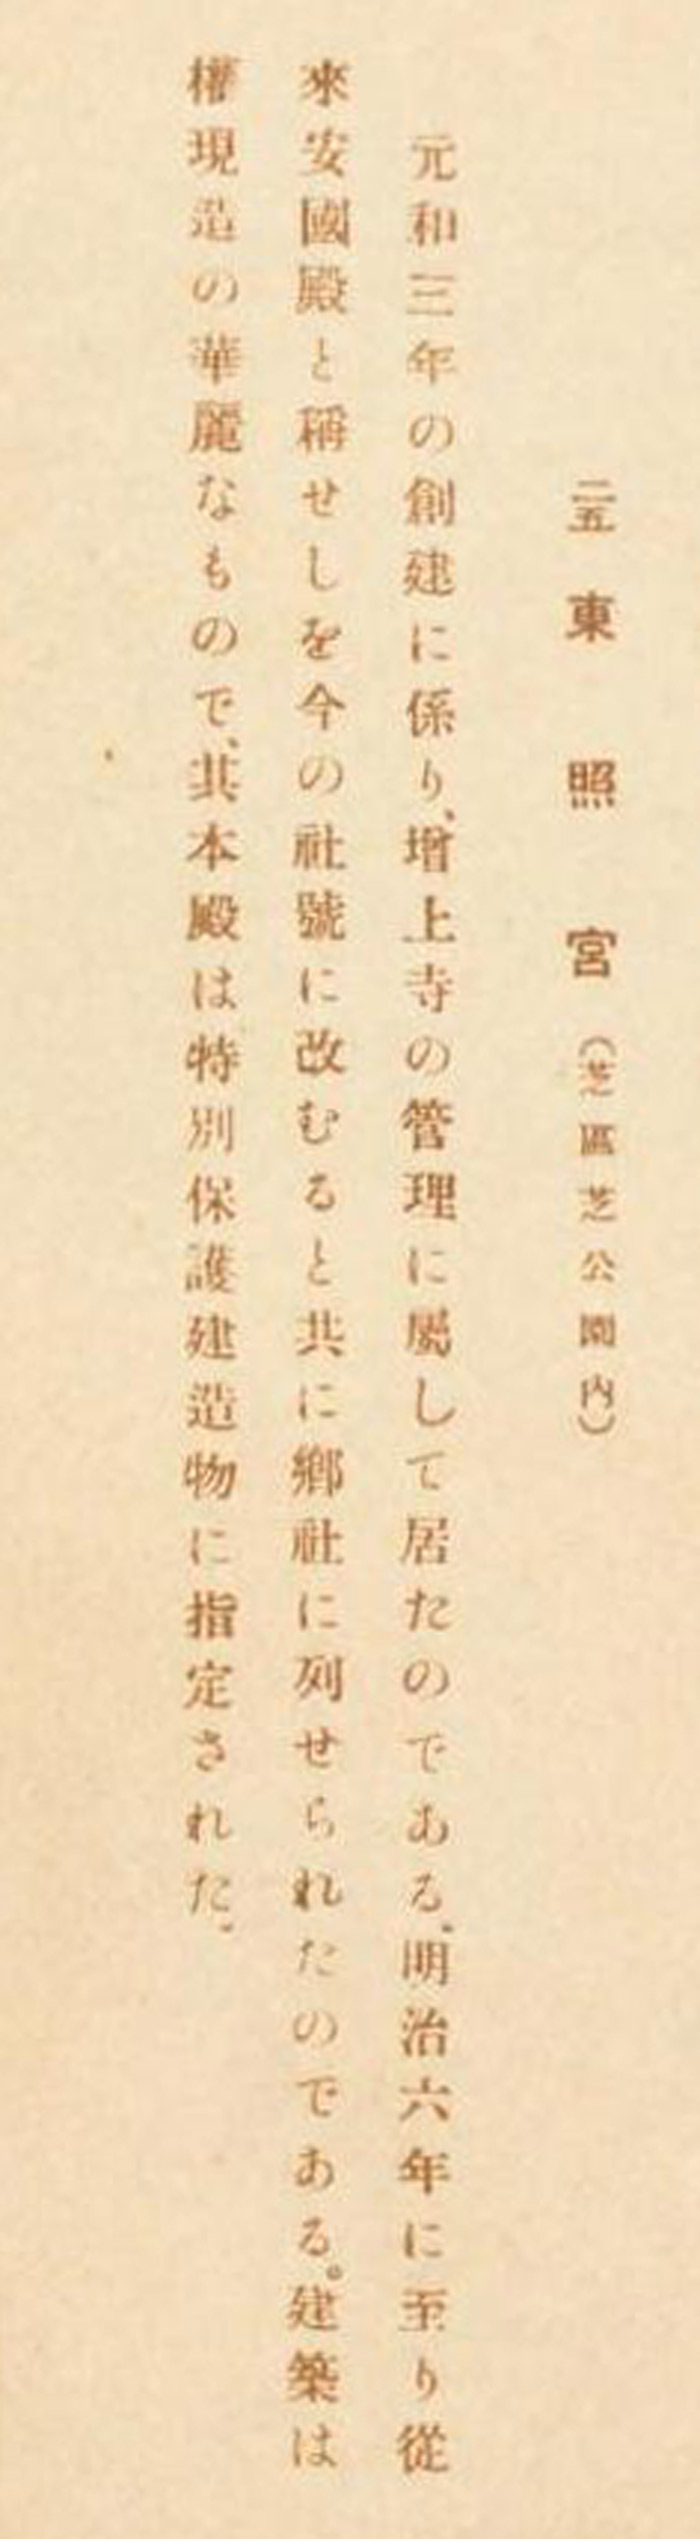 二五 東照宮（芝區芝公園内）
元和三年の創建に係り、增上寺の管理に屬して居たのである。明治六年に至り從
來安國殿と稱せしを今の社號に改むると共に鄕社に列せられたのである。建築は
權現造の華麗なもので、其本殿は特別保護建造物に指定された。